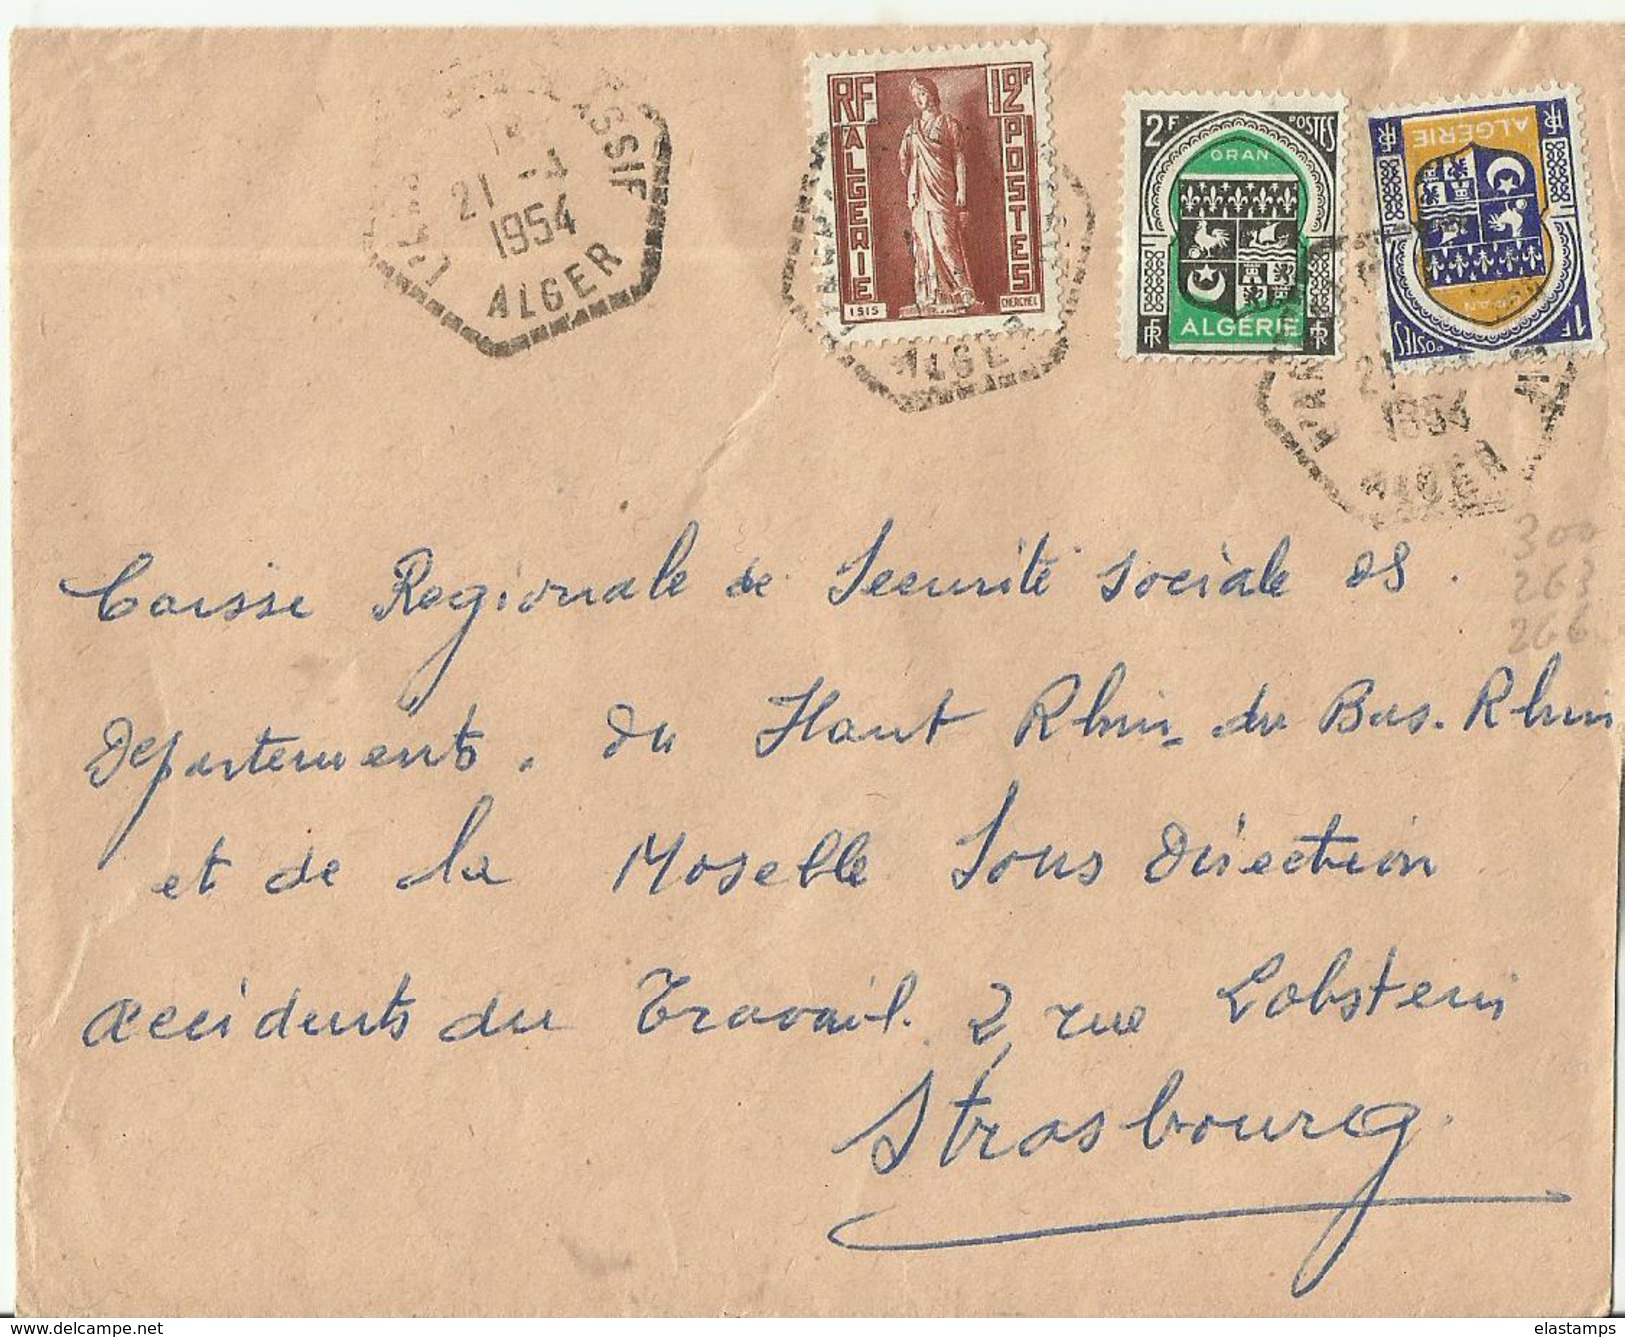 21 -4
1954
ALGER
RF
12F
ALGERIE
POSTES
ISIS
CHERCHEL
ALGER
2F
POSTES
ORAN
ALGÉRIE
RF
ALGÉRIE
1F
POSTES
21
1954
ALGER
300
263
266
Caisse Regionale de Securité sociale os.
Departements. du Haut Rhin. du Bas. Rhin
et de la Moselle Sous Direction
accidents du Travail. 2, rue Lobstein
Strasbourg.
elastamps
www.delcampe.net